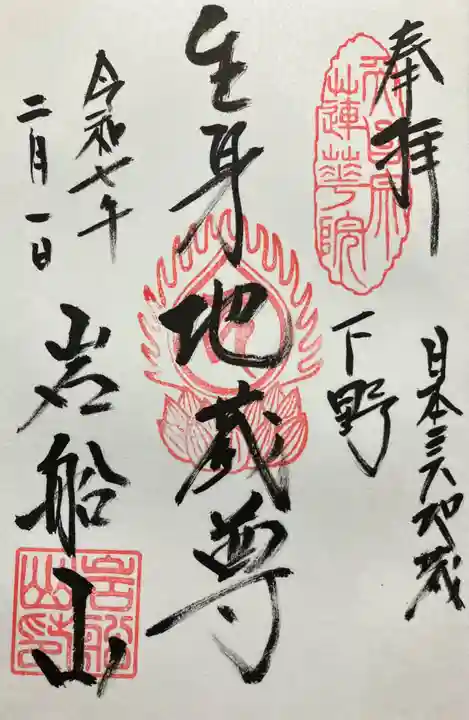 奉拝
日本三大地蔵
下野
生身地蔵尊
岩船山
令和七年
二月一日
蓮華院
岩船山印